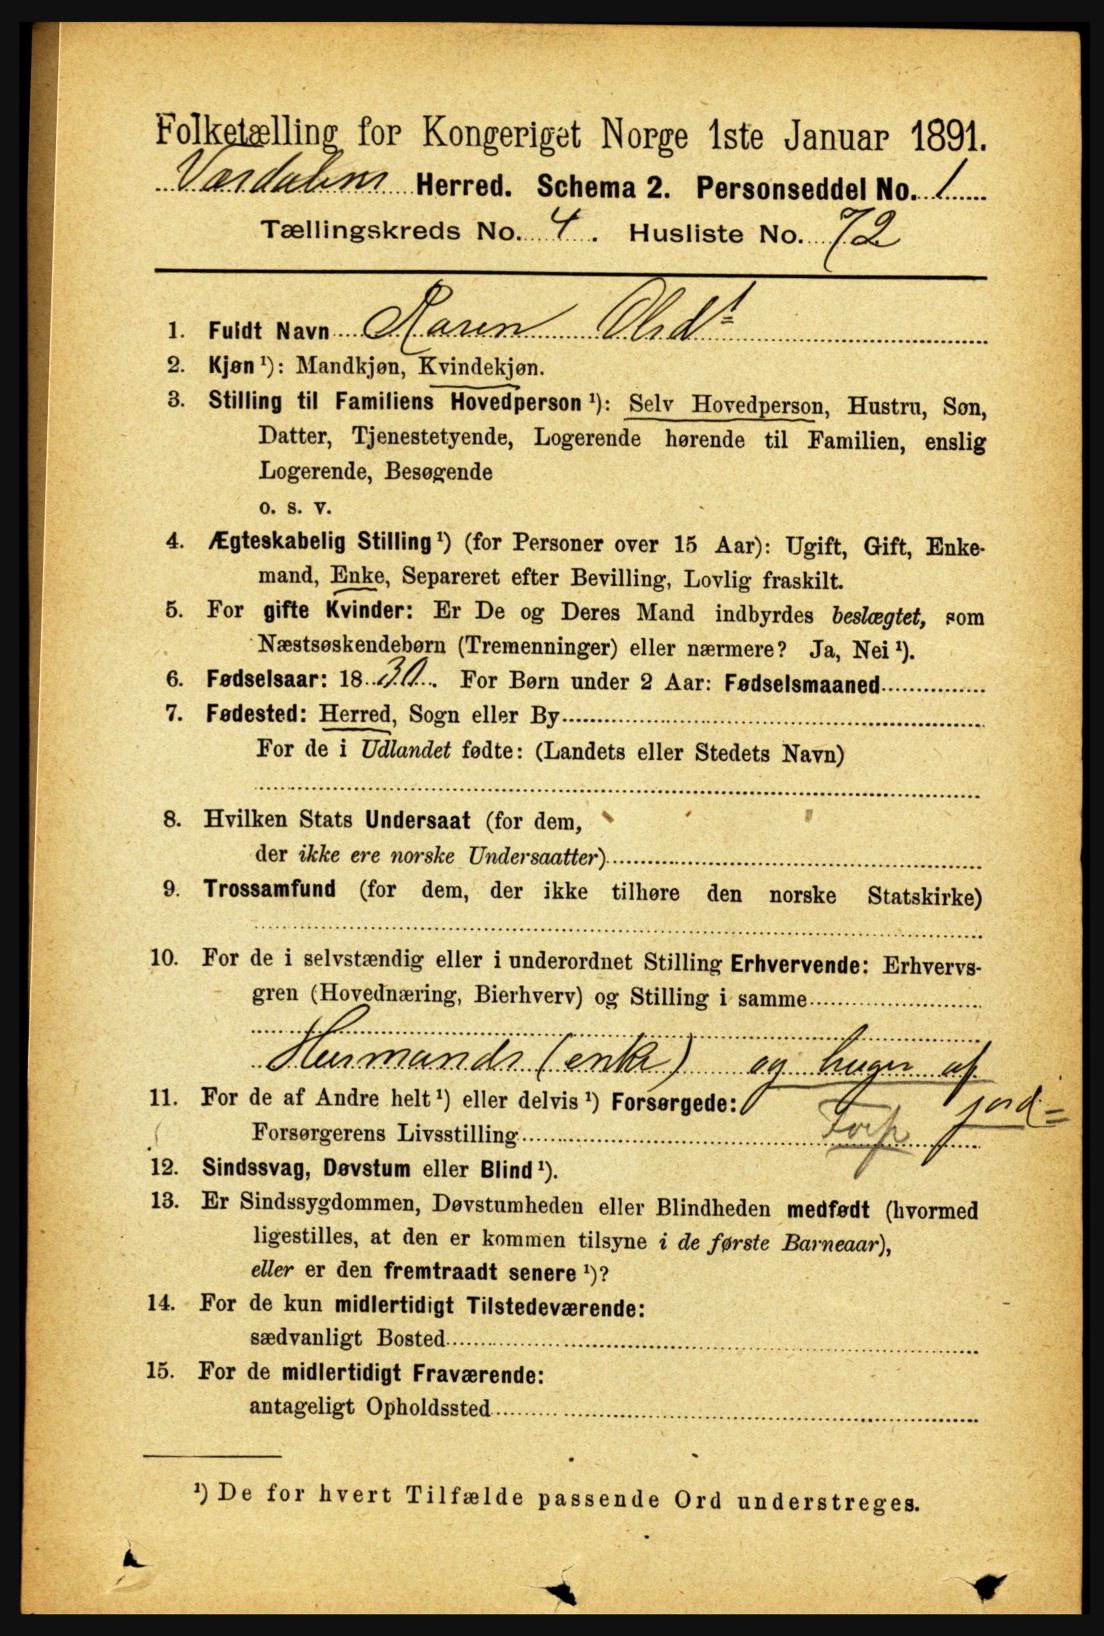 Folketælling for Kongeriget Norge 1ste Januar 1891.
Værdalens Herred. Schema 2. Personseddel No. 1
Tællingskreds No. 4. Husliste No. 72
1. Fuldt Navn Karen Olsdt
2. Kjøn ¹): Mandkjøn, Kvindekjøn.
3. Stilling til Familiens Hovedperson ¹): Selv Hovedperson, Hustru, Søn,
Datter, Tjenestetyende, Logerende hørende til Familien, enslig
Logerende, Besøgende
o. s. v.
4. Ægteskabelig Stilling ¹) (for Personer over 15 Aar): Ugift, Gift, Enke-
mand, Enke, Separeret efter Bevilling, Lovlig fraskilt.
5. For gifte Kvinder: Er De og Deres Mand indbyrdes beslægtet, som
Næstsøskendebørn (Tremenninger) eller nærmere? Ja, Nei ¹).
6. Fødselsaar: 1830. For Børn under 2 Aar: Fødselsmaaned
7. Fødested: Herred, Sogn eller By
For de i Udlandet fødte: (Landets eller Stedets Navn)
8. Hvilken Stats Undersaat (for dem,
der ikke ere norske Undersaatter)
9. Trossamfund (for dem, der ikke tilhøre den norske Statskirke)
10. For de i selvstændig eller i underordnet Stilling Erhvervende: Erhvervs-
gren (Hovednæring, Bierhverv) og Stilling i samme
Husmands (enke) og bruger af
11. For de af Andre helt ¹) eller delvis ¹) Forsørgede: jord
Forsørgerens Livsstilling
12. Sindssvag, Døvstum eller Blind ¹).
13. Er Sindssygdommen, Døvstumheden eller Blindheden medfødt (hvormed
ligestilles, at den er kommen tilsyne i de første Barneaar),
eller er den fremtraadt senere ¹)?
14. For de kun midlertidigt Tilstedeværende:
sædvanligt Bosted
15. For de midlertidigt Fraværende:
antageligt Opholdssted
¹) De for hvert Tilfælde passende Ord understreges.